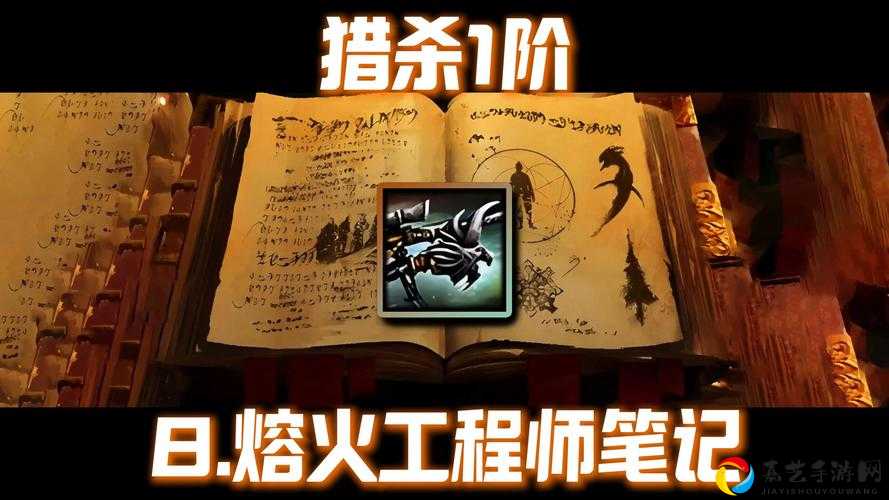 猎杀1阶
8.熔火工程师笔记
嘉艺手游网
JIAYISHOUYOUWANG